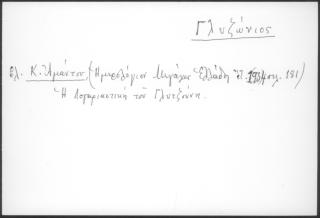 Γλυζώνιος
Βλ. Κ. Ἀμάντου, (Ἡμερολόγιον Μεγάλης Ἑλλάδος 1934 σελ. 181)
Ἡ Λογαριαστικὴ τοῦ Γλυτζούνη.